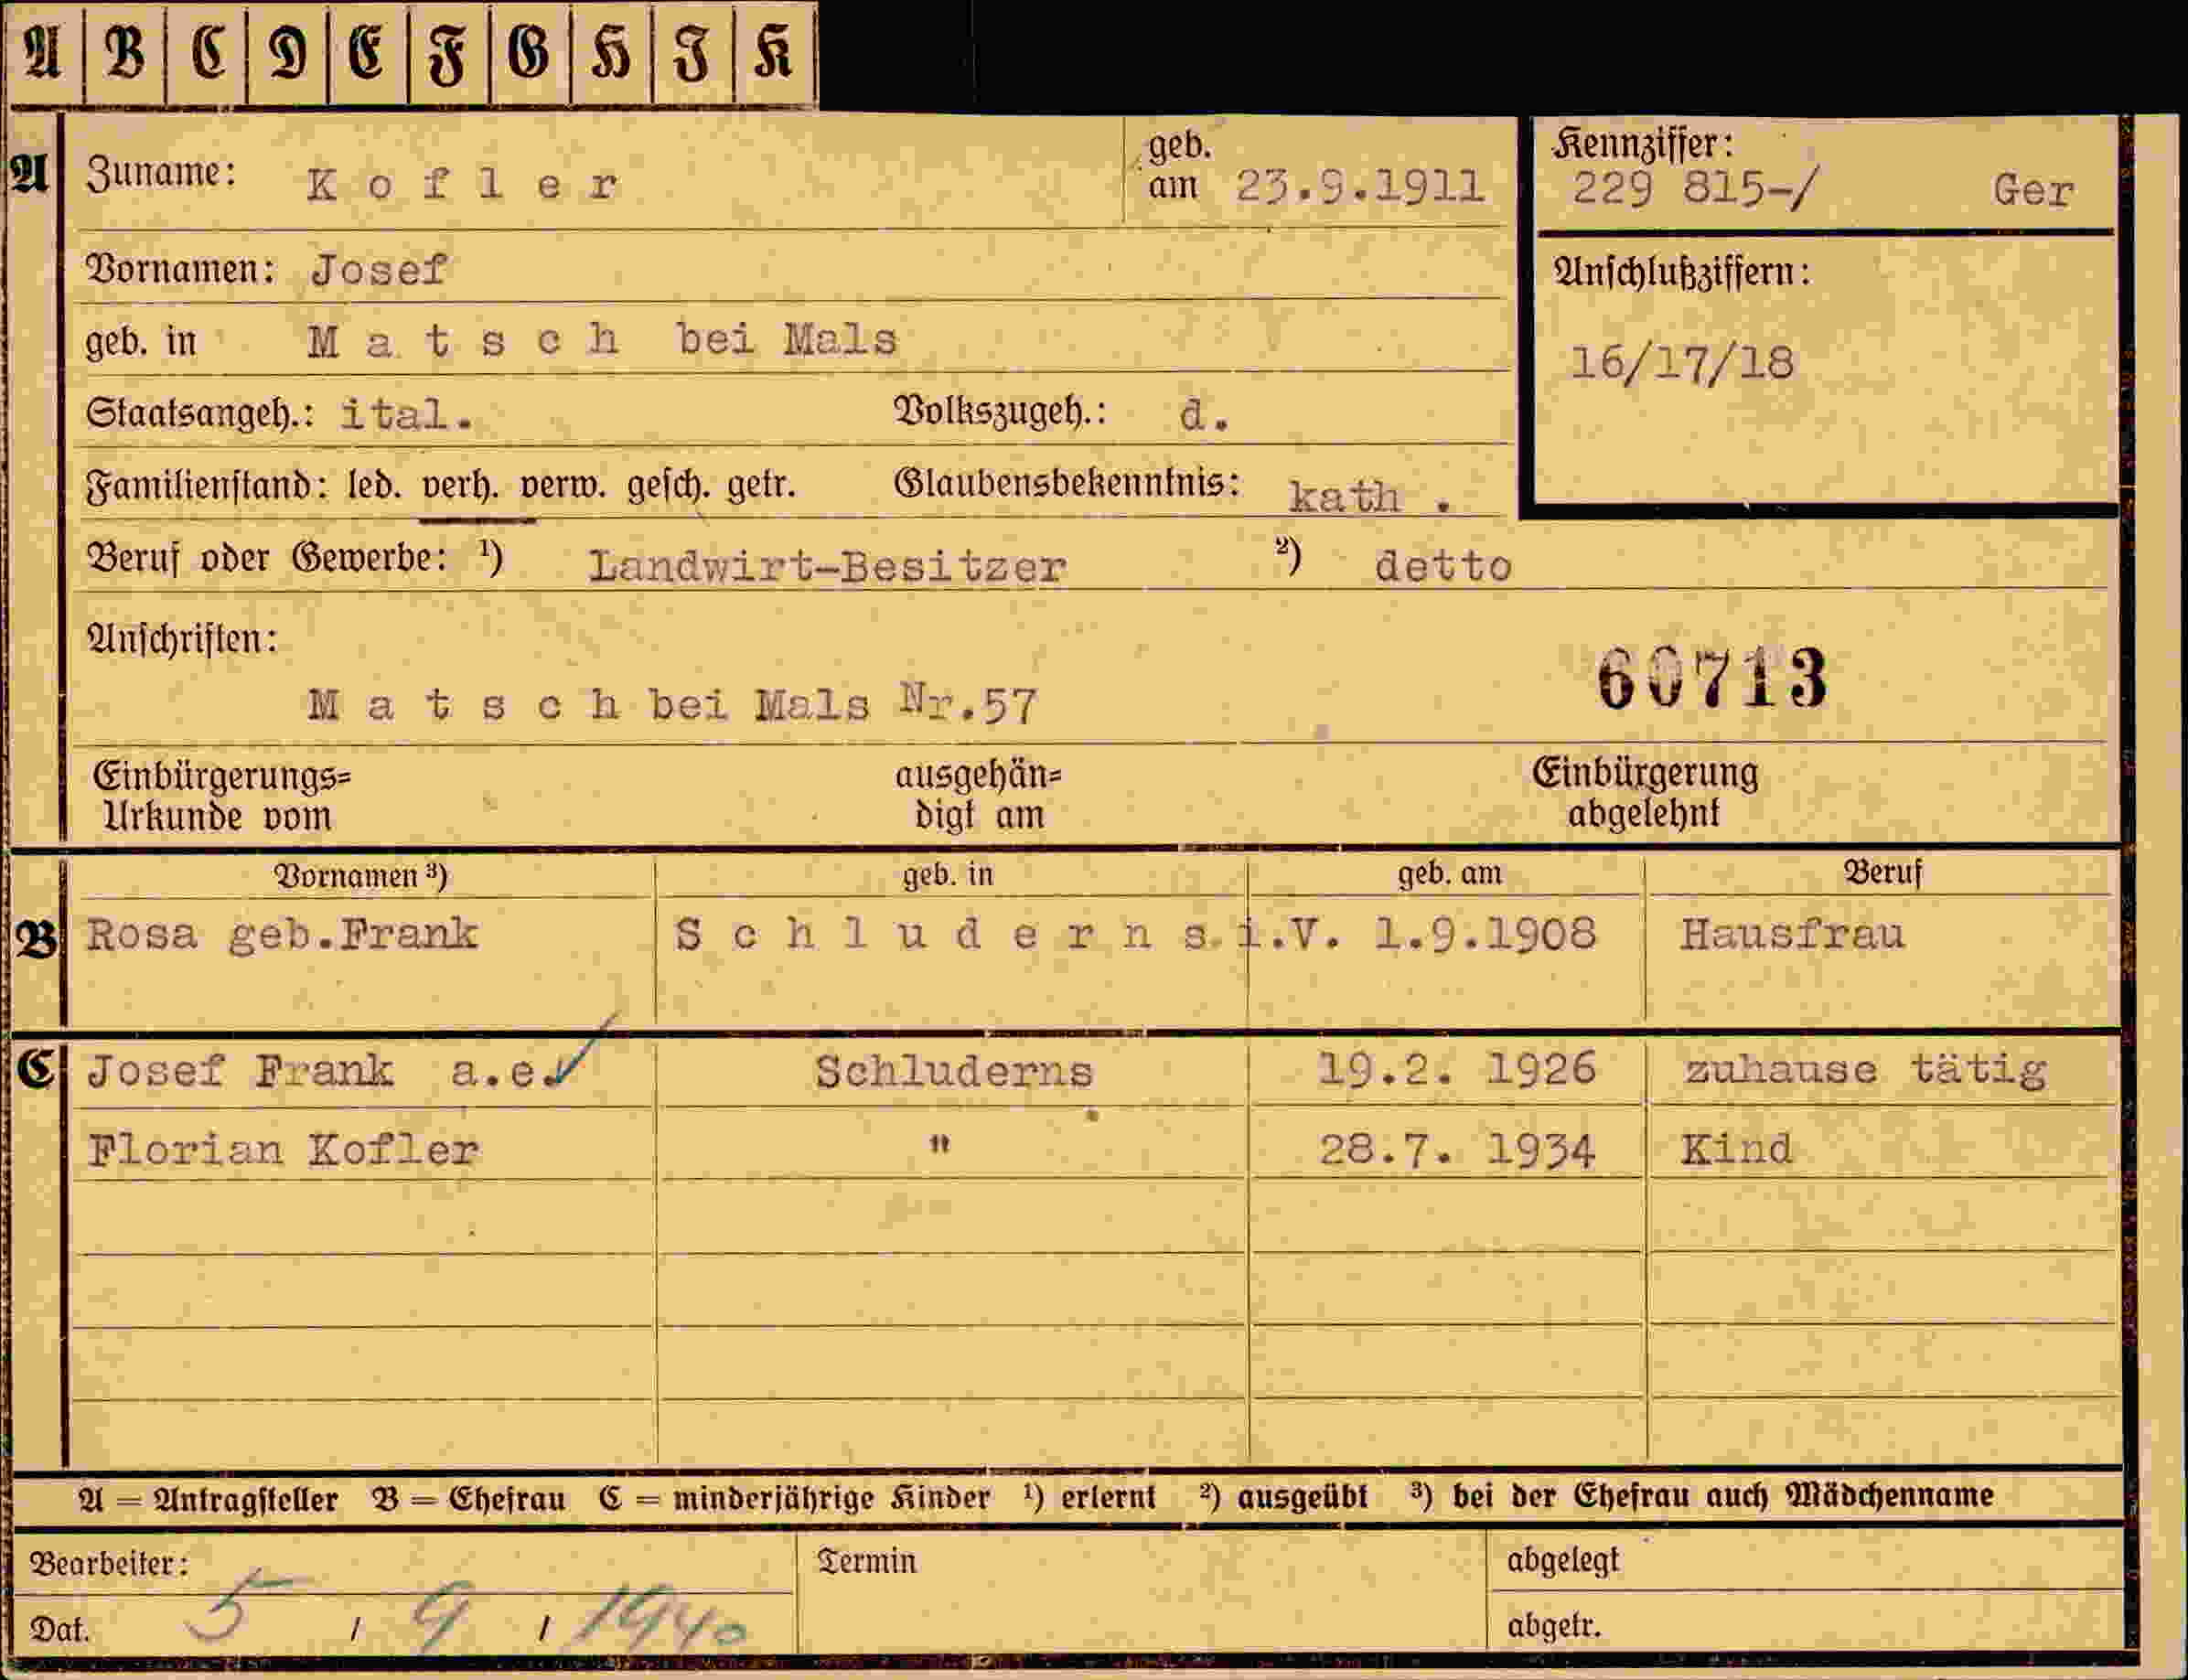 A B C D E F G H I K
A Zuname: Kofler geb. am 23.9.1911 Kennziffer: 229 815-/ Ger
Vornamen: Josef Anschlußziffern:
geb. in Matsch bei Mals 16/17/18
Staatsangeh.: ital. Volkszugeh.: d.
Familienstand: led. verh. verw. gesch. getr. Glaubensbekenntnis: kath .
Beruf oder Gewerbe: ¹) Landwirt-Besitzer ²) detto
Anschriften:
60713
Matsch bei Mals Nr.57
Einbürgerungs= ausgehän= Einbürgerung
Urkunde vom digt am abgelehnt
Vornamen ³) geb. in geb. am Beruf
B Rosa geb.Frank Schluderns i.V. 1.9.1908 Hausfrau
C Josef Frank a.e. Schluderns 19.2. 1926 zuhause tätig
Florian Kofler " 28.7. 1934 Kind
A = Antragsteller B = Ehefrau C = minderjährige Kinder ¹) erlernt ²) ausgeübt ³) bei der Ehefrau auch Mädchenname
Bearbeiter: Termin abgelegt
Dat. 5 / 9 / 1940 abgetr.